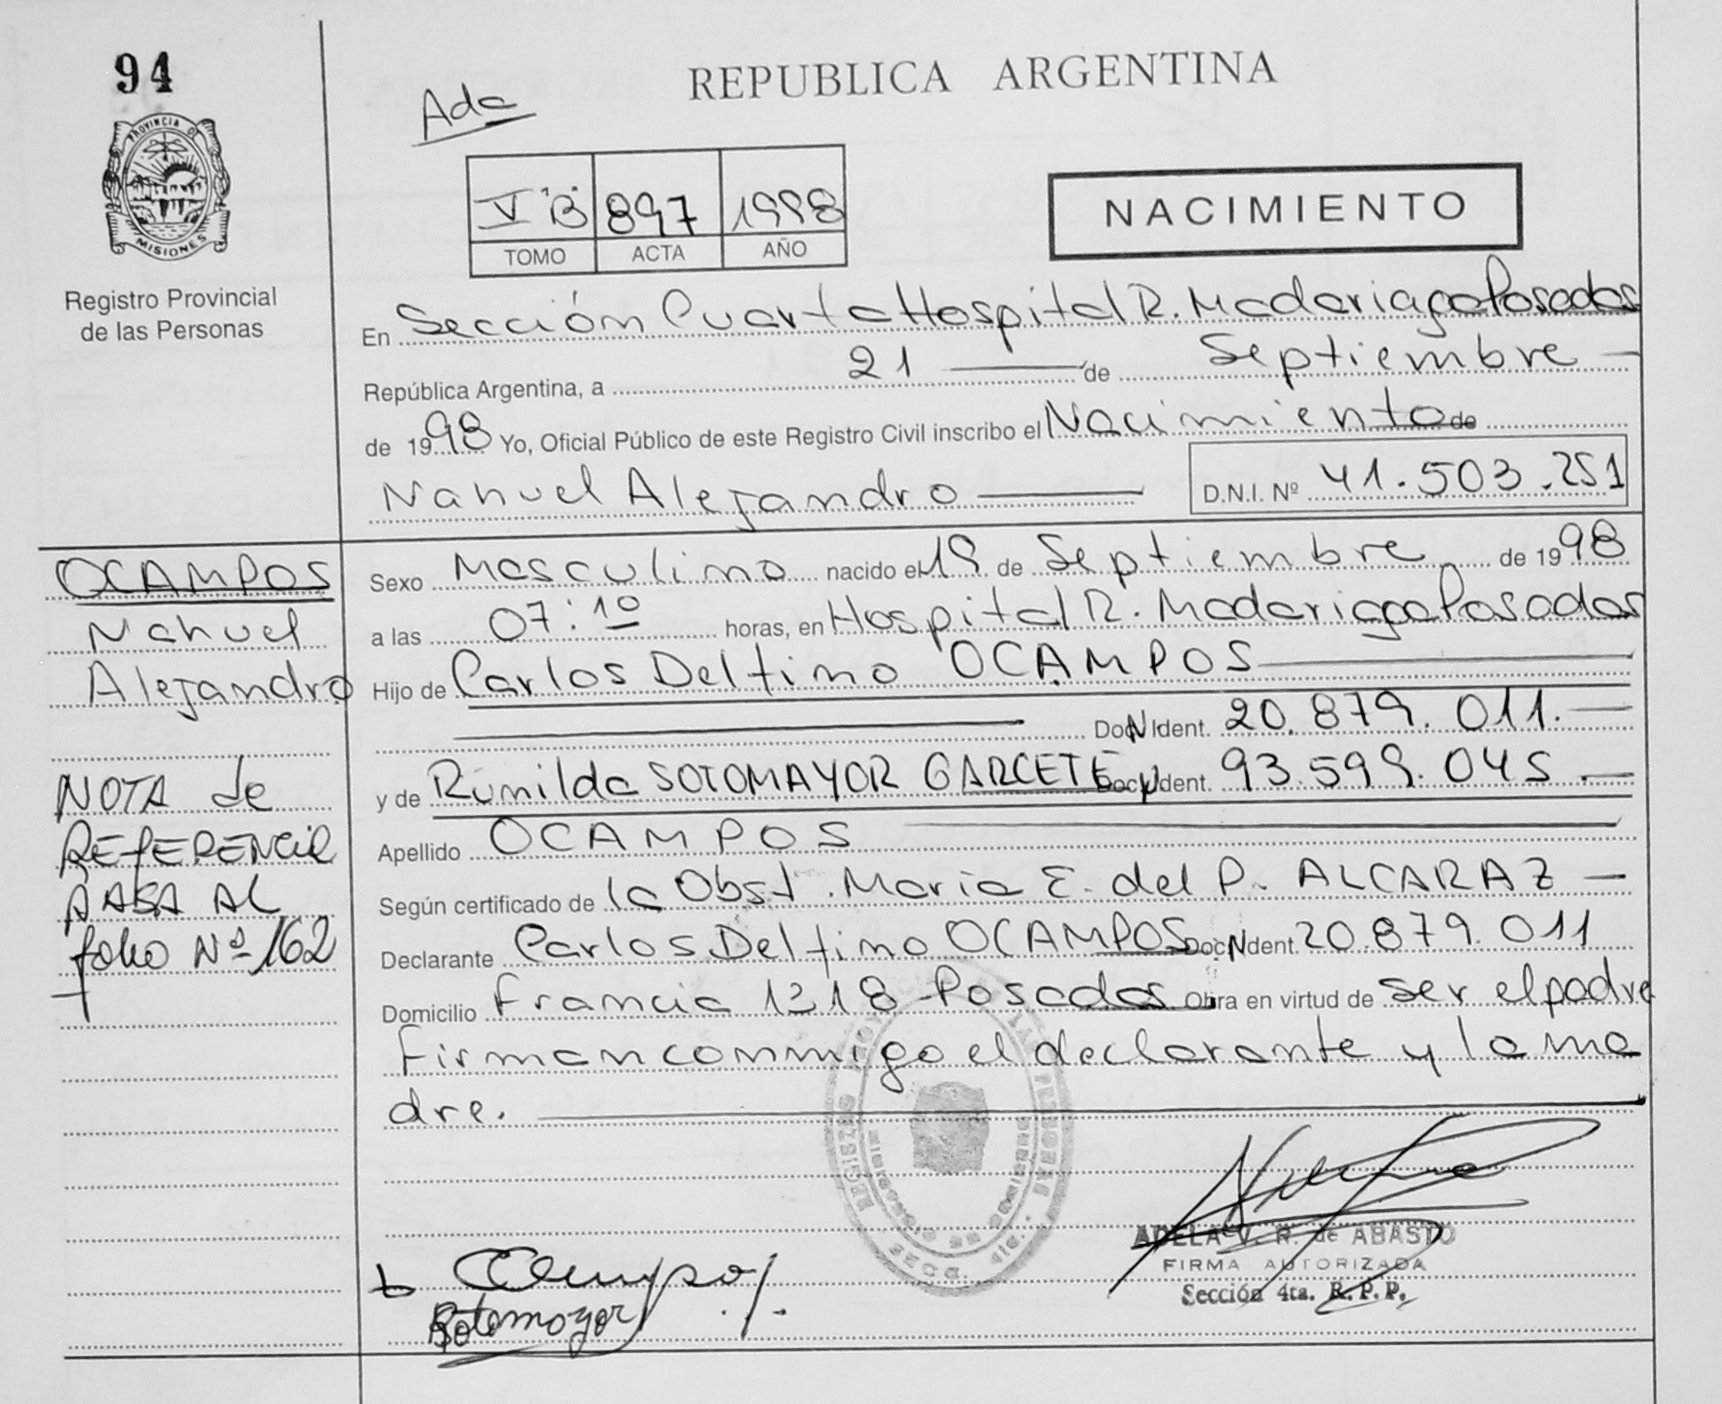 94
REPUBLICA ARGENTINA
Ada
PROVINCIA D
MISIONES
V "B" 897 1998
TOMO ACTA AÑO
NACIMIENTO
Registro Provincial
de las Personas
En Sección Cuarta Hospital R. Madariaga Posadas
República Argentina, a 21 de Septiembre
de 1998 Yo, Oficial Público de este Registro Civil inscribo el Nacimiento de
Nahuel Alejandro D.N.I. Nº 41.503.251
OCAMPOS
Nahuel
Alejandro
NOTA de
REFERENCIA
PASA AL
folio Nº 162
Sexo Masculino nacido el 19 de Septiembre de 1998
a las 07:10 horas, en Hospital R. Madariaga Posadas
Hijo de Carlos Delfino OCAMPOS
Doc. Ident. 20.879.011.
y de Rumilda SOTOMAYOR GARCETE Doc. Ident. 93.599.045
Apellido OCAMPOS
Según certificado de la Obst. Maria E. del P. ALCARAZ
Declarante Carlos Delfino OCAMPOS Doc. Ident. 20.879.011
Domicilio Francia 1218 Posadas Obra en virtud de ser el padre
Firman conmigo el declarante y la ma
dre.
ADELA V. R. de ABASTO
FIRMA AUTORIZADA
Sección 4ta. R.P.P.
Sotomayor